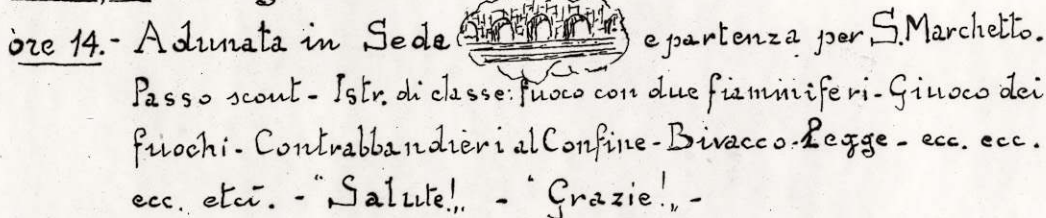 ore 14.- Adunata in Sede e partenza per S. Marchetto.
Passo scout - Istr. di classe: fuoco con due fiammiferi - Giuoco dei
fuochi - Contrabbandieri al Confine - Bivacco - Legge - ecc. ecc.
ecc. etcì. - "Salute!„ - "Grazie!„ -